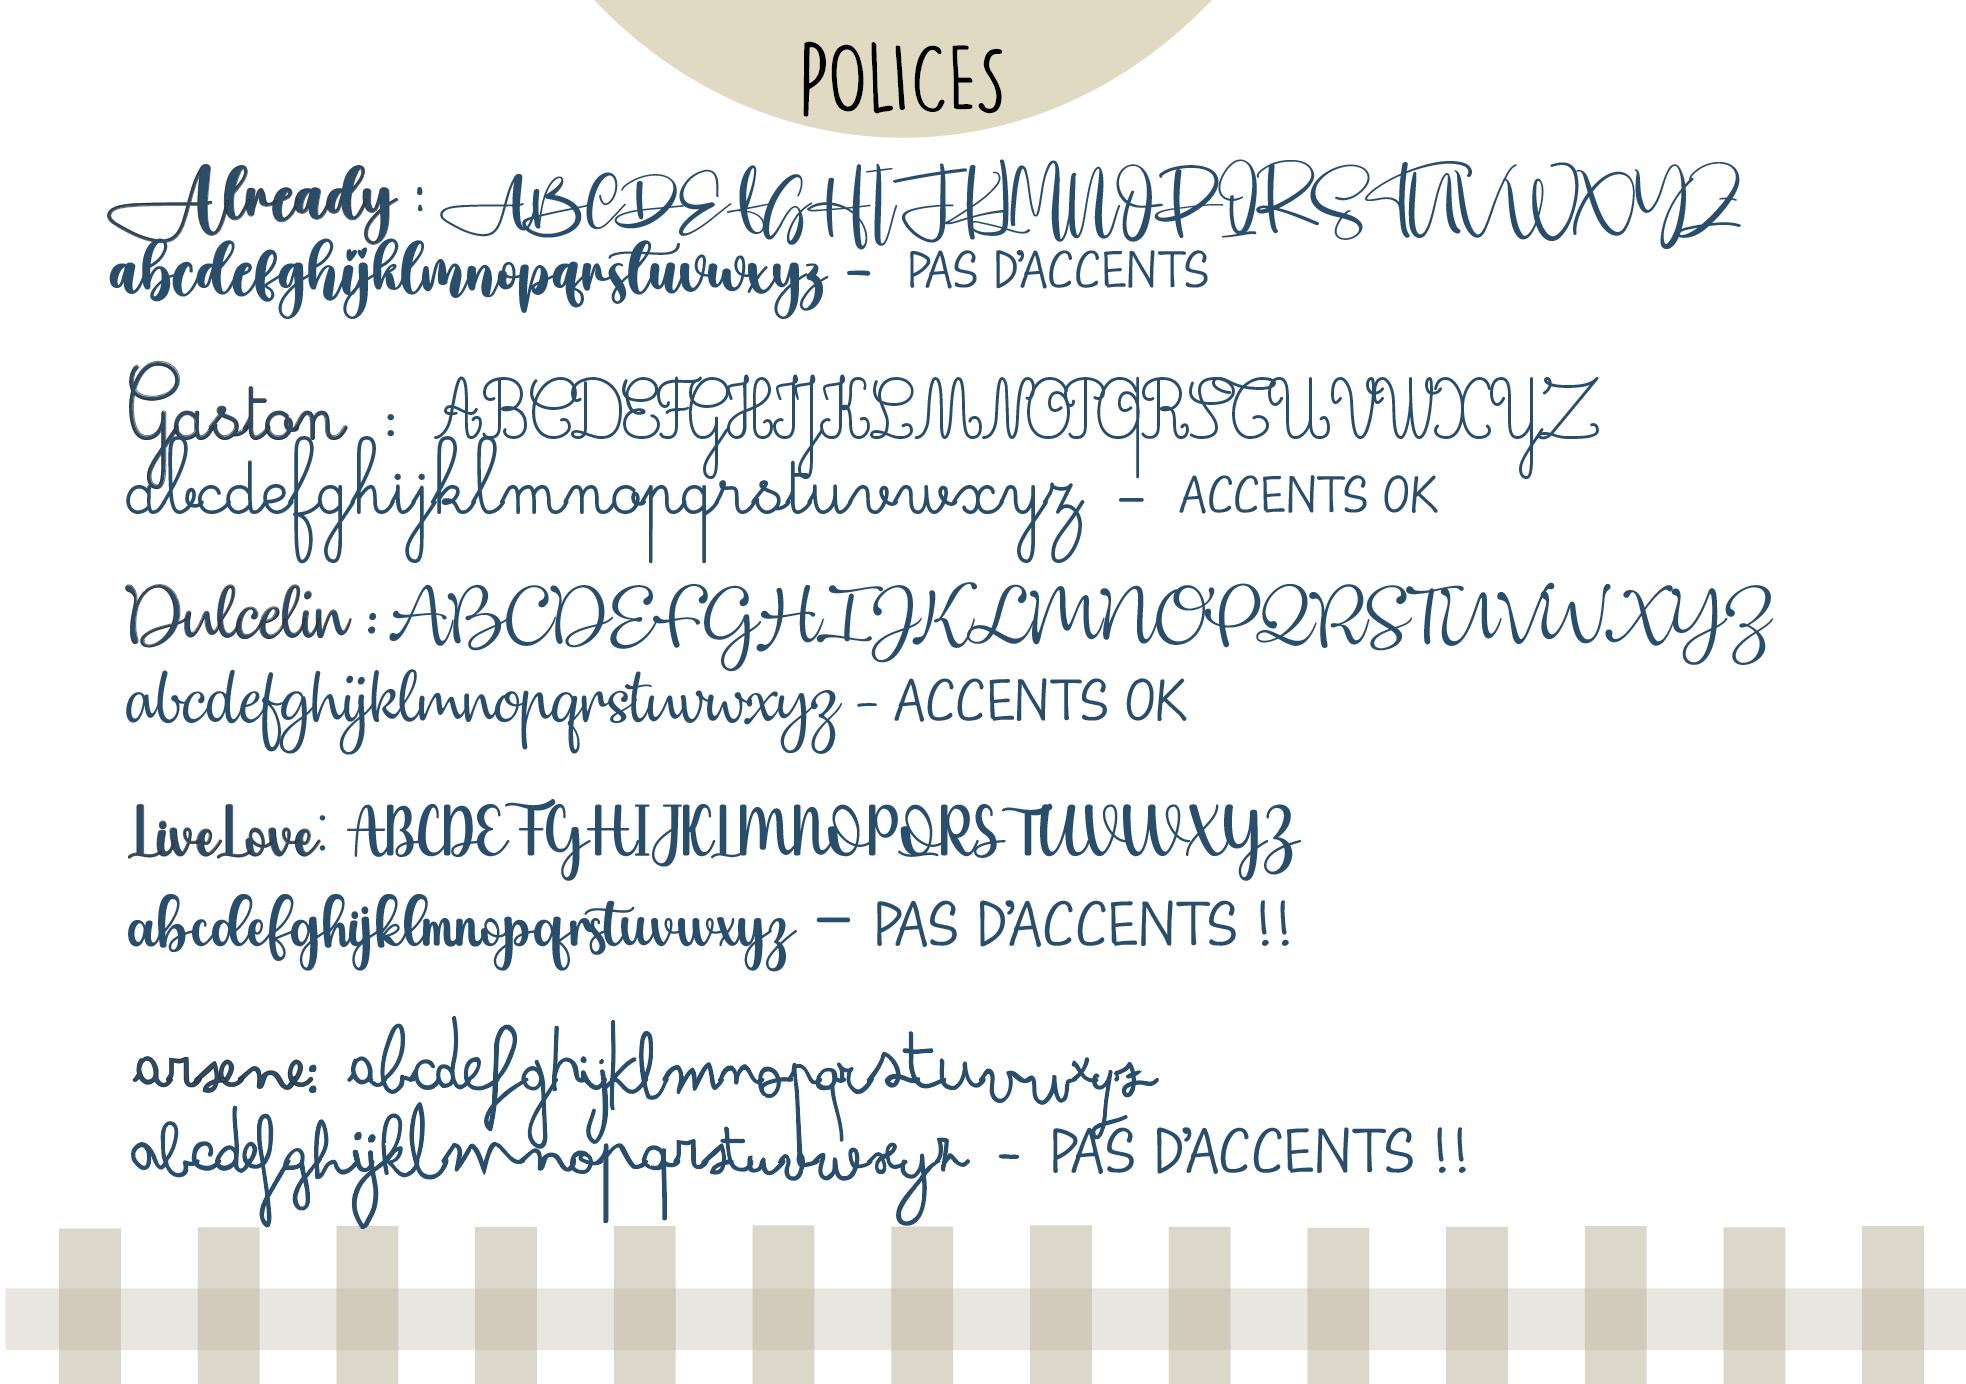 POLICES
Already : ABCDEFGHIJKLMNOPQRSTUVWXYZ
abcdefghijklmnopqrstuvwxyz - PAS D'ACCENTS
Gaston : ABCDEFGHIJKLMNOPQRSTUVWXYZ
abcdefghijklmnopqrstuvwxyz - ACCENTS OK
Dulcelin : ABCDEFGHIJKLMNOPQRSTUVWXYZ
abcdefghijklmnopqrstuvwxyz - ACCENTS OK
LiveLove: ABCDEFGHIJKLMNOPQRSTUVWXYZ
abcdefghijklmnopqrstuvwxyz - PAS D'ACCENTS !!
arsene: abcdefghijklmnopqrstuvwxyz
abcdefghijklmnopqrstuvwxyz - PAS D'ACCENTS !!